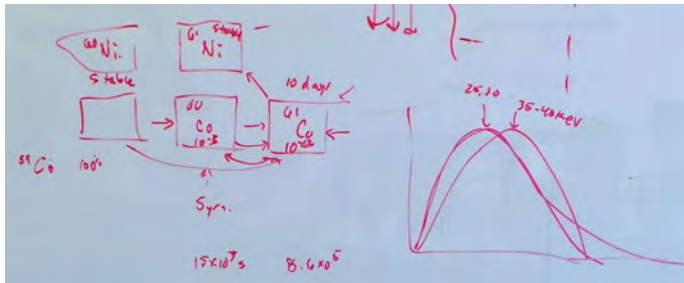 60 Ni
stable
61 stable
Ni
10 days
60
Co
10⁻³
61
Co
59 Co 100%
15×10³ s 8.6×10⁵
25,30
35-40 keV